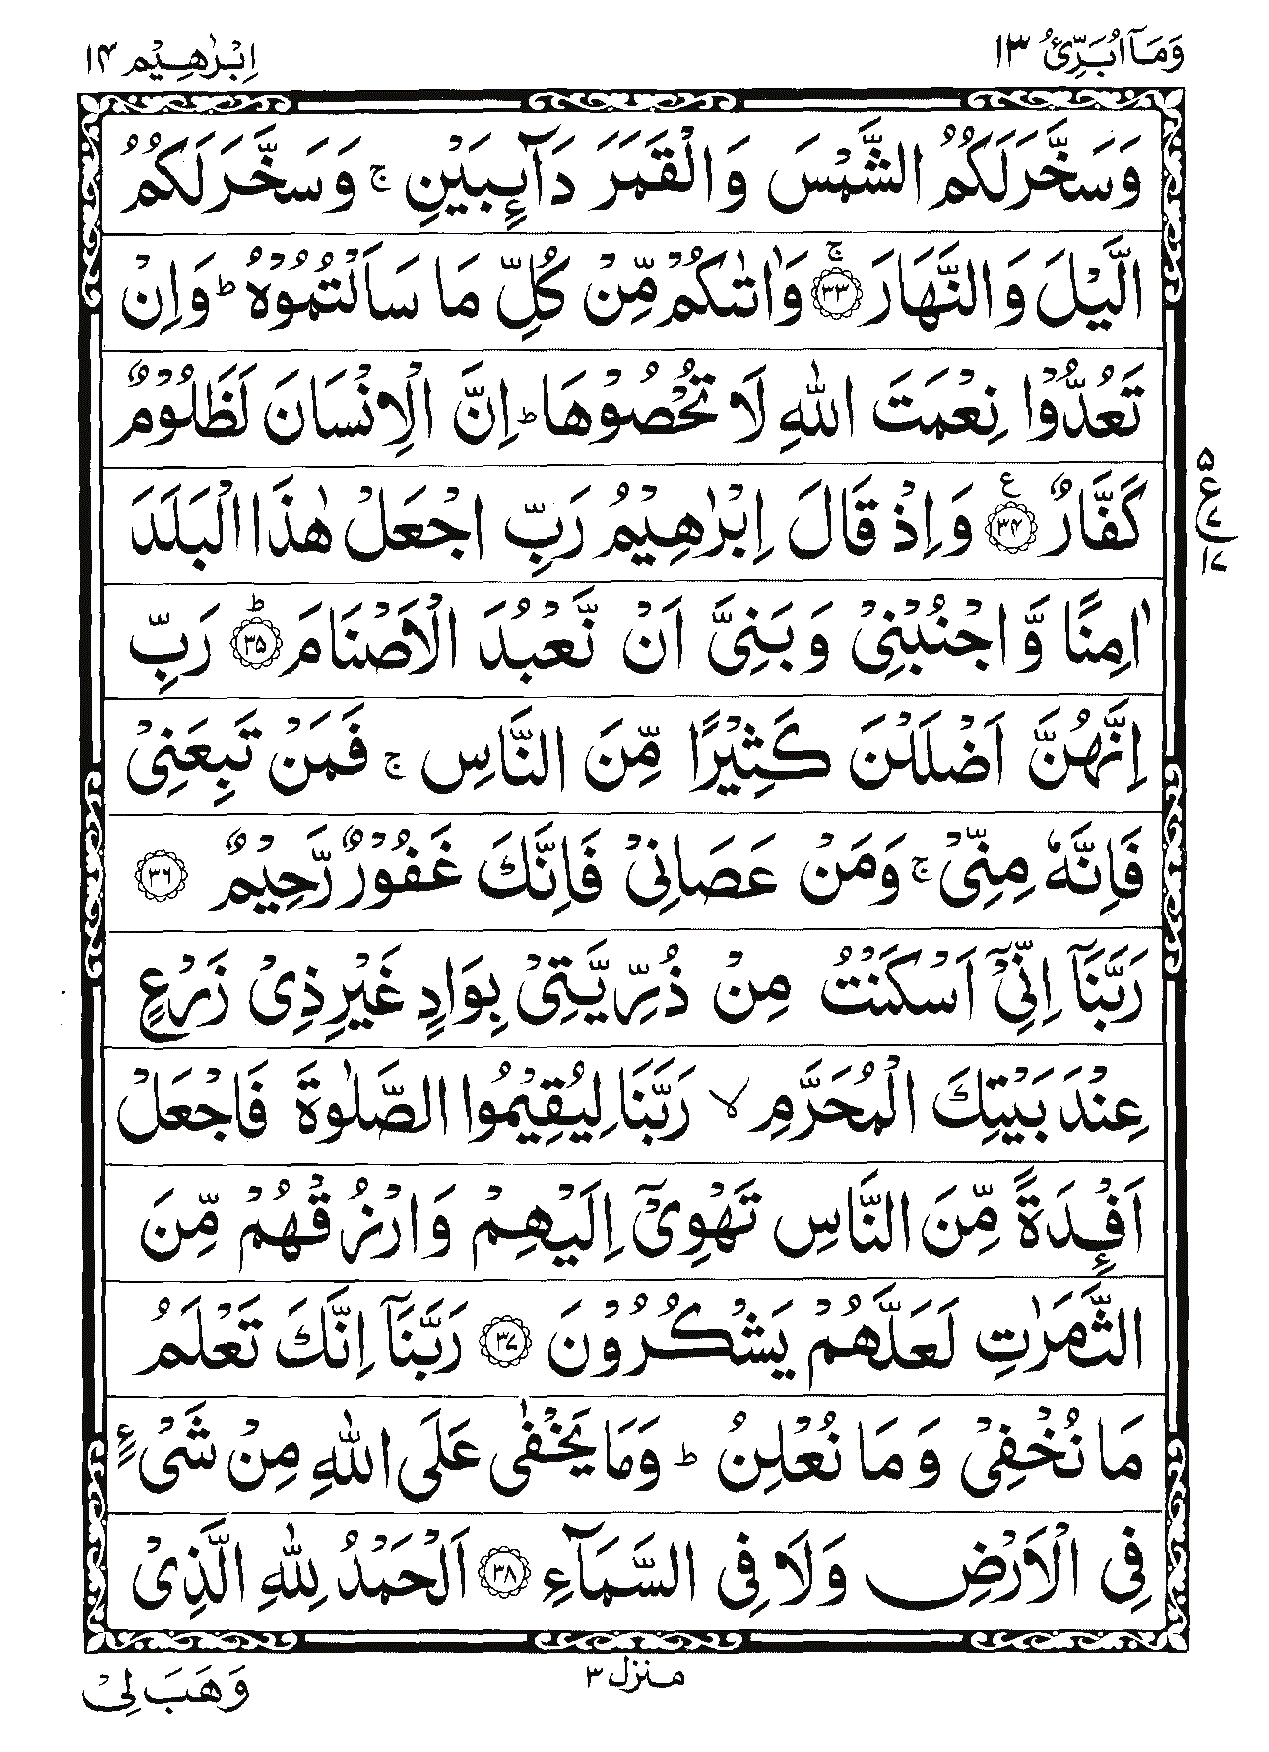 وَمَآ اُبَرِّئُ ١٣
اِبْرٰهِيْم ١٤
وَسَخَّرَ لَكُمُ الشَّمْسَ وَالْقَمَرَ دَآئِبَيْنِ ۚ وَسَخَّرَ لَكُمُ
الَّيْلَ وَالنَّهَارَ ۚ ﴿٣٣﴾ وَاٰتٰىكُمْ مِّنْ كُلِّ مَا سَاَلْتُمُوْهُ ؕ وَاِنْ
تَعُدُّوْا نِعْمَتَ اللّٰهِ لَا تُحْصُوْهَا ؕ اِنَّ الْاِنْسَانَ لَظَلُوْمٌ
كَفَّارٌ ﴿٣٤﴾ ع وَاِذْ قَالَ اِبْرٰهِيْمُ رَبِّ اجْعَلْ هٰذَا الْبَلَدَ
٥
ع
٧
١٧
اٰمِنًا وَّاجْنُبْنِيْ وَبَنِيَّ اَنْ نَّعْبُدَ الْاَصْنَامَ ؕ ﴿٣٥﴾ رَبِّ
اِنَّهُنَّ اَضْلَلْنَ كَثِيْرًا مِّنَ النَّاسِ ۚ فَمَنْ تَبِعَنِيْ
فَاِنَّهٗ مِنِّيْ ۚ وَمَنْ عَصَانِيْ فَاِنَّكَ غَفُوْرٌ رَّحِيْمٌ ﴿٣٦﴾
رَبَّنَآ اِنِّيْٓ اَسْكَنْتُ مِنْ ذُرِّيَّتِيْ بِوَادٍ غَيْرِ ذِيْ زَرْعٍ
عِنْدَ بَيْتِكَ الْمُحَرَّمِ ۙ رَبَّنَا لِيُقِيْمُوا الصَّلٰوةَ فَاجْعَلْ
اَفْئِدَةً مِّنَ النَّاسِ تَهْوِيْٓ اِلَيْهِمْ وَارْزُقْهُمْ مِّنَ
الثَّمَرٰتِ لَعَلَّهُمْ يَشْكُرُوْنَ ﴿٣٧﴾ رَبَّنَآ اِنَّكَ تَعْلَمُ
مَا نُخْفِيْ وَمَا نُعْلِنُ ؕ وَمَا يَخْفٰى عَلَى اللّٰهِ مِنْ شَيْءٍ
فِي الْاَرْضِ وَلَا فِي السَّمَآءِ ﴿٣٨﴾ اَلْحَمْدُ لِلّٰهِ الَّذِيْ
منزل ٣
وَهَبَ لِيْ